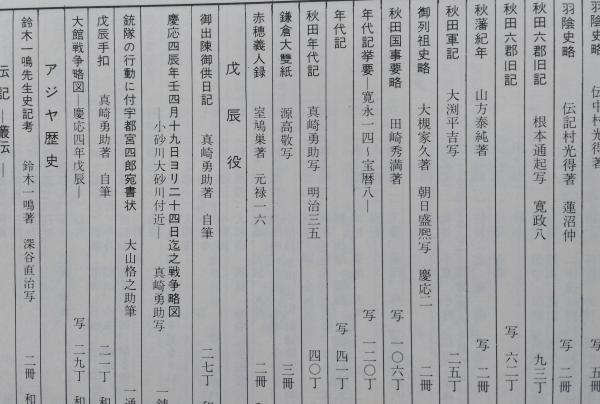 羽陰史略 伝中村光得著 写 五冊
羽陰史略 伝記村光得著 蓮沼仲 写 二冊
秋田六郡旧記 根本通起写 寛政八 九三丁
秋田六郡旧記 写 六二丁
秋藩紀年 山方泰純著 写 二冊
秋田軍記 大渕平吉写 二五丁
御列祖史略 大槻家久著 朝日盛熈写 慶応二 二冊
秋田国事要略 田崎秀満著 写 一〇六丁
年代記挙要―寛永一四～宝暦八― 写 一二〇丁
年代記 写 四一丁
秋田年代記 真崎勇助写 明治三五 四〇丁
鎌倉大雙紙 源高敬写 三冊
赤穂義人録 室鳩巣著 元禄一六 二冊
戊辰役
御出陳御供日記 真崎勇助著 自筆 二七丁 和
慶応四辰年壬四月十九日ヨリ二十四日迄之戦争略図
―小砂川大砂川付近― 真崎勇助写 一舗
銃隊の行動に付宇都宮四郎宛書状 大山格之助筆 一通
戊辰手扣 真崎勇助著 自筆 二一丁 和
大館戦争略図―慶応四年戊辰― 写 二九丁 和
アジヤ歴史
鈴木一鳴先生史記考 鈴木一鳴著 深谷直治写 二冊 和
伝記―叢伝―